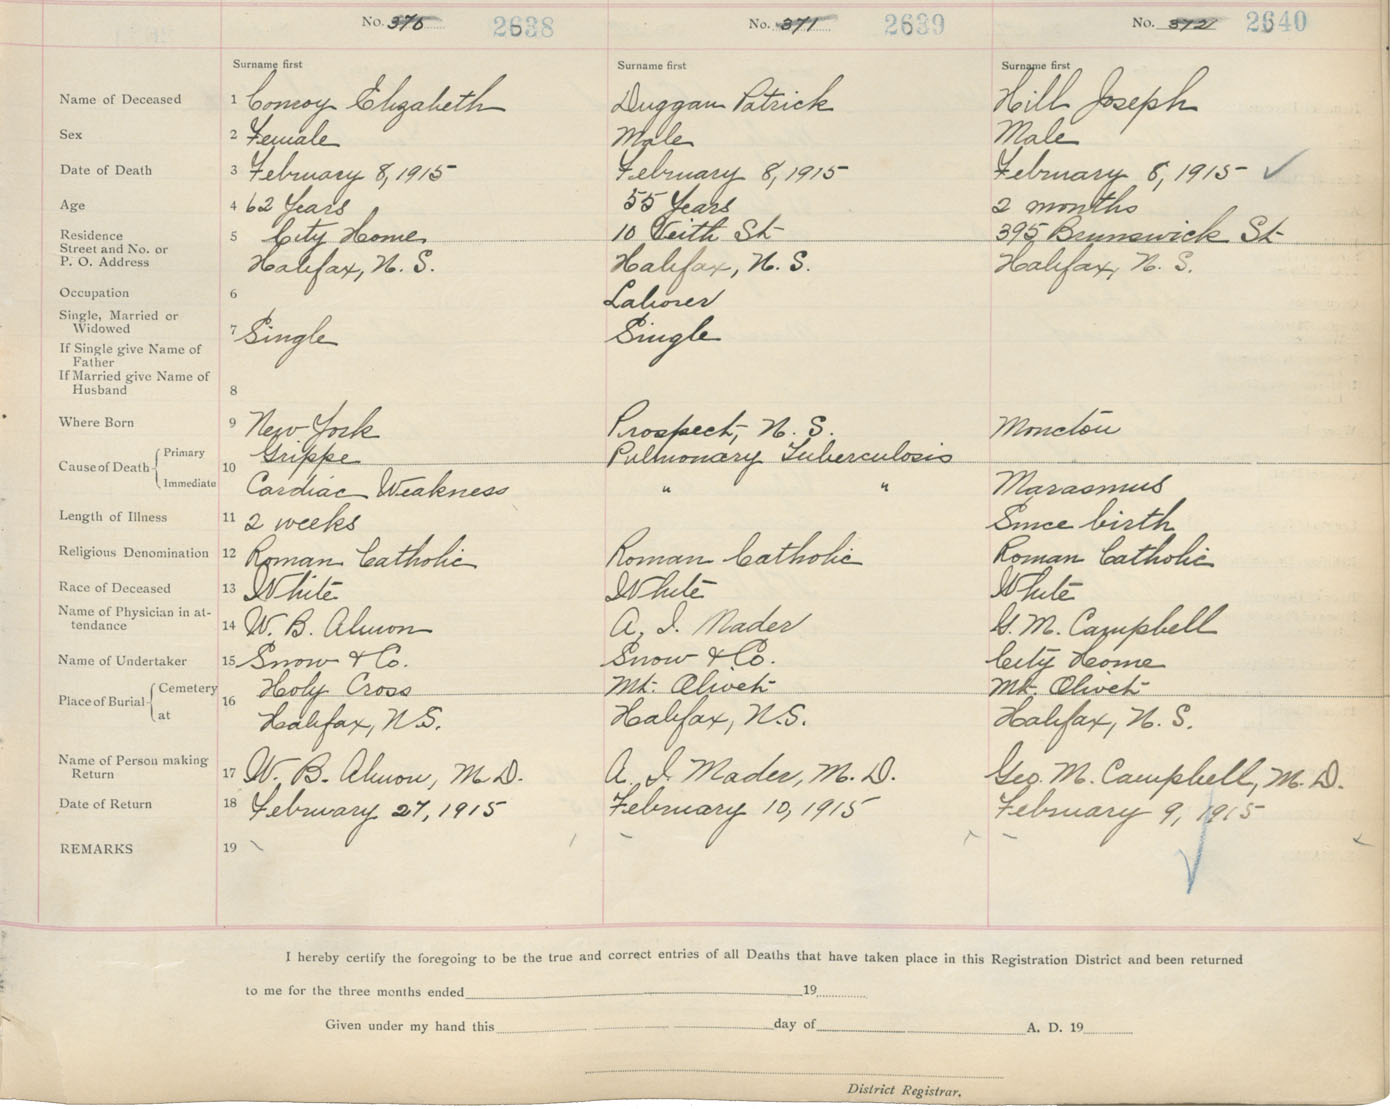 No. 370 2638 No. 371 2639 No. 372 2640
Surname first Surname first Surname first
Name of Deceased 1 Conroy Elizabeth Duggan Patrick Hill Joseph
Sex 2 Female Male Male
Date of Death 3 February 8, 1915 February 8, 1915 February 8, 1915
Age 4 62 Years 55 Years 2 months
Residence
Street and No. or
P. O. Address
5 City Home 10 Veith St 395 Brunswick St
Halifax, N. S. Halifax, N. S. Halifax, N. S.
Occupation 6 Laborer
Single, Married or
Widowed
7 Single Single
If Single give Name of
Father
If Married give Name of
Husband
8
Where Born 9 New York Prospect, N. S. Moncton
Cause of Death Primary Grippe Pulmonary Tuberculosis
10
Immediate Cardiac Weakness " " Marasmus
Length of Illness 11 2 weeks Since birth
Religious Denomination 12 Roman Catholic Roman Catholic Roman Catholic
Race of Deceased 13 White White White
Name of Physician in at-
tendance
14 W. B. Almon A. I. Mader G. M. Campbell
Name of Undertaker 15 Snow & Co. Snow & Co. City Home
Place of Burial Cemetery Holy Cross Mt. Olivet Mt. Olivet
16
at Halifax, N.S. Halifax, N.S. Halifax, N. S.
Name of Person making
Return
17 W. B. Almon, M.D. A. I. Mader, M. D. Geo. M. Campbell, M. D.
Date of Return 18 February 27, 1915 February 10, 1915 February 9, 1915
REMARKS 19
I hereby certify the foregoing to be the true and correct entries of all Deaths that have taken place in this Registration District and been returned
to me for the three months ended 19
Given under my hand this day of A. D. 19
District Registrar.